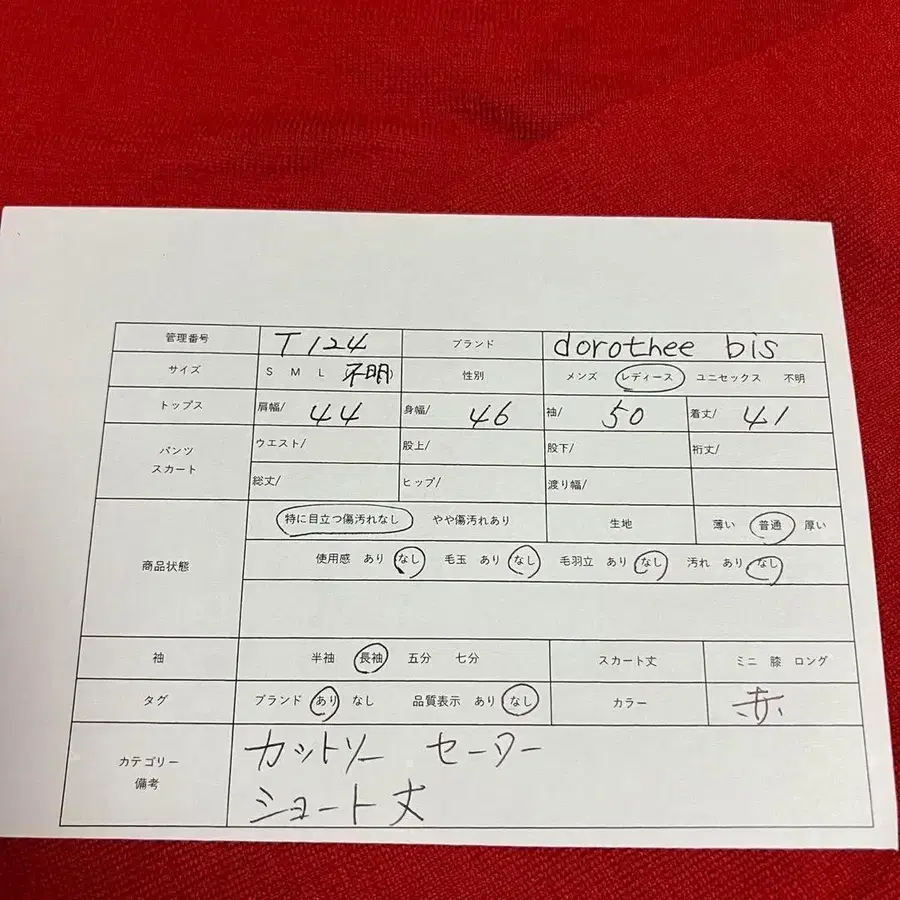 管理番号 T124 ブランド dorothee bis
サイズ S M L 不明) 性別 メンズ レディース ユニセックス 不明
トップス 肩幅/ 44 身幅/ 46 袖/ 50 着丈/ 41
パンツ
スカート
ウエスト/ 股上/ 股下/ 裄丈/
総丈/ ヒップ/ 渡り幅/
商品状態
特に目立つ傷汚れなし やや傷汚れあり 生地 薄い 普通 厚い
使用感 あり なし 毛玉 あり なし 毛羽立 あり なし 汚れ あり なし
袖 半袖 長袖 五分 七分 スカート丈 ミニ 膝 ロング
タグ ブランド あり なし 品質表示 あり なし カラー 赤
カテゴリー
備考
カットソー セーター
ショート丈